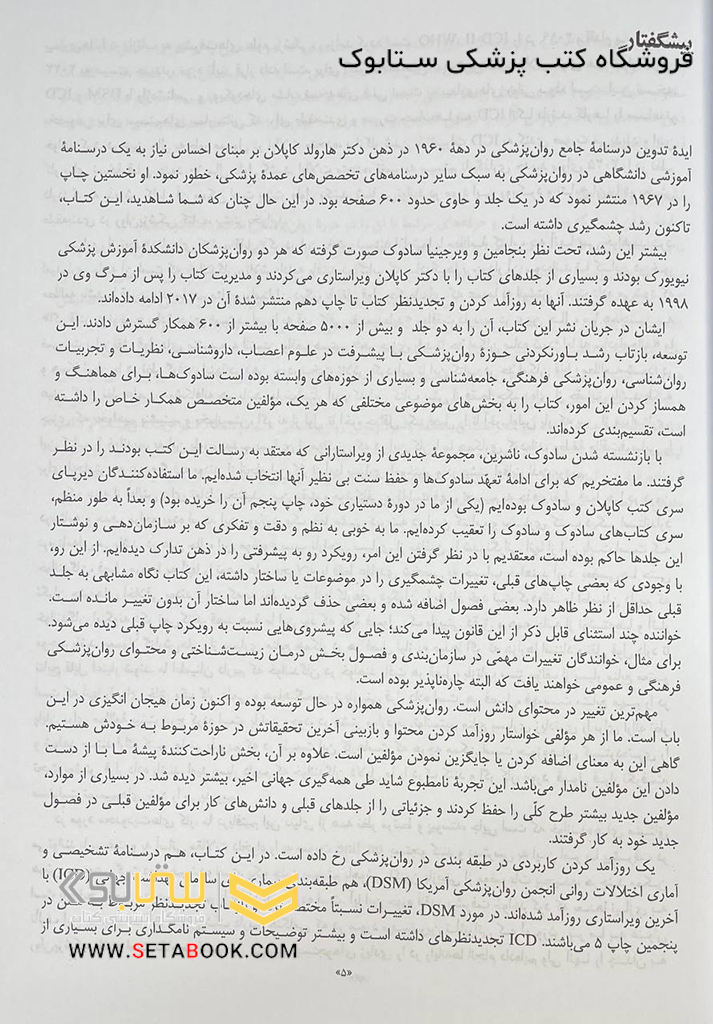 پیشگفتار
فروشگاه کتب پزشکی ستابوک
ایدهٔ تدوین درسنامهٔ جامع روان‌پزشکی در دههٔ ۱۹۶۰ در ذهن دکتر هارولد کاپلان بر مبنای احساس نیاز به یک درسنامهٔ
آموزشی دانشگاهی در روان‌پزشکی به سبک سایر درسنامه‌های تخصص‌های عمدهٔ پزشکی، خطور نمود. او نخستین چاپ
را در ۱۹۶۷ منتشر نمود که در یک جلد و حاوی حدود ۶۰۰ صفحه بود. در این حال چنان که شما شاهدید، این کتاب،
تاکنون رشد چشمگیری داشته است.
بیشتر این رشد، تحت نظر بنجامین و ویرجینیا سادوک صورت گرفته که هر دو روان‌پزشکان دانشکدهٔ آموزش پزشکی
نیویورک بودند و بسیاری از جلدهای کتاب را با دکتر کاپلان ویراستاری می‌کردند و مدیریت کتاب را پس از مرگ وی در
۱۹۹۸ به عهده گرفتند. آنها به روزآمد کردن و تجدیدنظر کتاب تا چاپ دهم منتشر شدهٔ آن در ۲۰۱۷ ادامه داده‌اند.
ایشان در جریان نشر این کتاب، آن را به دو جلد و بیش از ۵۰۰۰ صفحه با بیشتر از ۶۰۰ همکار گسترش دادند. این
توسعه، بازتاب رشد باورنکردنی حوزهٔ روان‌پزشکی با پیشرفت در علوم اعصاب، داروشناسی، نظریات و تجربیات
روان‌شناسی، روان‌پزشکی فرهنگی، جامعه‌شناسی و بسیاری از حوزه‌های وابسته بوده است سادوک‌ها، برای هماهنگ و
همساز کردن این امور، کتاب را به بخش‌های موضوعی مختلفی که هر یک، مؤلفین متخصص همکار خاص را داشته
است، تقسیم‌بندی کرده‌اند.
با بازنشسته شدن سادوک، ناشرین، مجموعهٔ جدیدی از ویراستارانی که معتقد به رسالت این کتب بودند را در نظر
گرفتند. ما مفتخریم که برای ادامهٔ تعهّد سادوک‌ها و حفظ سنت بی نظیر آنها انتخاب شده‌ایم. ما استفاده‌کنندگان دیرپای
سری کتب کاپلان و سادوک بوده‌ایم (یکی از ما در دورهٔ دستیاری خود، چاپ پنجم آن را خریده بود) و بعداً به طور منظم،
سری کتاب‌های سادوک و سادوک را تعقیب کرده‌ایم. ما به خوبی به نظم و دقت و تفکری که بر سازمان‌دهی و نوشتار
این جلدها حاکم بوده است، معتقدیم با در نظر گرفتن این امر، رویکرد رو به پیشرفتی را در ذهن تدارک دیده‌ایم. از این رو،
با وجودی که بعضی چاپ‌های قبلی، تغییرات چشمگیری را در موضوعات یا ساختار داشته، این کتاب نگاه مشابهی به جلد
قبلی حداقل از نظر ظاهر دارد. بعضی فصول اضافه شده و بعضی حذف گردیده‌اند اما ساختار آن بدون تغییر مانده است.
خواننده چند استثنای قابل ذکر از این قانون پیدا می‌کند؛ جایی که پیشروی‌هایی نسبت به رویکرد چاپ قبلی دیده می‌شود.
برای مثال، خوانندگان تغییرات مهمّی در سازمان‌بندی و فصول بخش درمان زیست‌شناختی و محتوای روان‌پزشکی
فرهنگی و عمومی خواهند یافت که البته چاره‌ناپذیر بوده است.
مهم‌ترین تغییر در محتوای دانش است. روان‌پزشکی همواره در حال توسعه بوده و اکنون زمان هیجان انگیزی در این
باب است. ما از هر مؤلفی خواستار روزآمد کردن محتوا و بازبینی آخرین تحقیقاتش در حوزهٔ مربوط به خودش هستیم.
گاهی این به معنای اضافه کردن یا جایگزین نمودن مؤلفین است. علاوه بر آن، بخش ناراحت‌کنندهٔ پیشهٔ ما با از دست
دادن این مؤلفین نامدار می‌باشد. این تجربهٔ نامطبوع شاید طی همه‌گیری جهانی اخیر، بیشتر دیده شد. در بسیاری از موارد،
مؤلفین جدید بیشتر طرح کلّی را حفظ کردند و جزئیاتی را از جلدهای قبلی و دانش‌های کار برای مؤلفین قبلی در فصول
جدید خود به کار گرفتند.
یک روزآمد کردن کاربردی در طبقه بندی در روان‌پزشکی رخ داده است. در این کتاب، هم درسنامهٔ تشخیصی و
آماری اختلالات روانی انجمن روان‌پزشکی آمریکا (DSM)، هم طبقه‌بندی (ICD) با
آخرین ویراستاری روزآمد شده‌اند. در مورد DSM، تغییرات نسبتاً تجدیدنظر در
پنجمین چاپ ۵ می‌باشند. ICD تجدیدنظرهای داشته است و بیشتر توضیحات و سیستم نامگذاری برای بسیاری از
ستابوک
WWW.SETABOOK.COM
«۵»